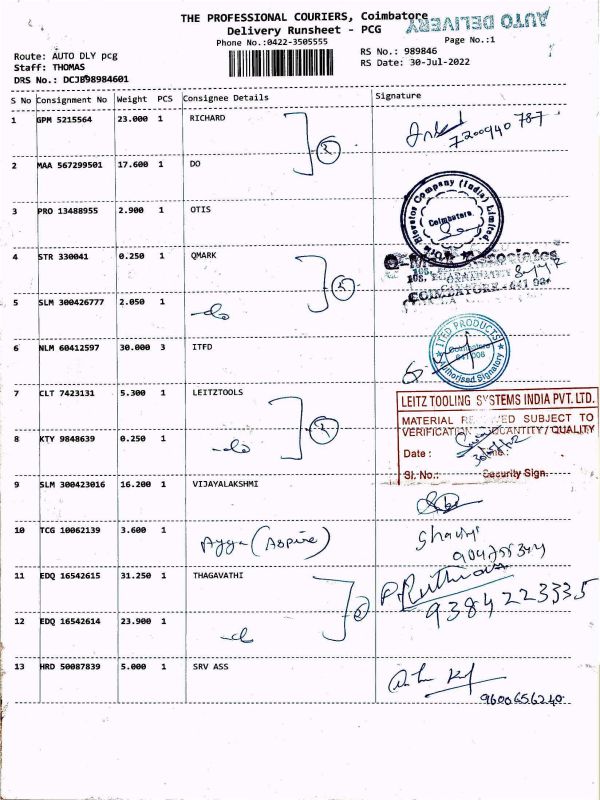 THE PROFESSIONAL COURIERS, Coimbatore
AUTO DELIVERY
Delivery Runsheet - PCG
Phone No.:0422-3505555
Page No.:1
Route: AUTO DLY pcg
RS No.: 989846
Staff: THOMAS
RS Date: 30-Jul-2022
DRS No.: DCJB98984601
S No Consignment No Weight PCS Consignee Details Signature
1 GPM 5215564 23.000 1 RICHARD
7200940787
2 MAA 567299501 17.600 1 DO
3 PRO 13488955 2.900 1 OTIS
Elevator Company (India) Limited
Coimbatore
4 STR 330041 0.250 1 QMARK
Associates
COIMBATORE - 641
5 SLM 300426777 2.050 1 do
6 NLM 60412597 30.000 3 ITFD
ITFD PRODUCTS
Coimbatore
641 006
Authorised Signatory
7 CLT 7423131 5.300 1 LEITZTOOLS
LEITZ TOOLING SYSTEMS INDIA PVT. LTD.
MATERIAL SUBJECT TO
VERIFICATION QUANTITY / QUALITY
8 KTY 9848639 0.250 1 do
Date :
Sl. No.: Security Sign.
9 SLM 300423016 16.200 1 VIJAYALAKSHMI
10 TCG 10062139 3.600 1 Ayya (Aspire)
11 EDQ 16542615 31.250 1 THAGAVATHI
9384223335
12 EDQ 16542614 23.900 1 do
13 HRD 50087839 5.000 1 SRV ASS
9600656240